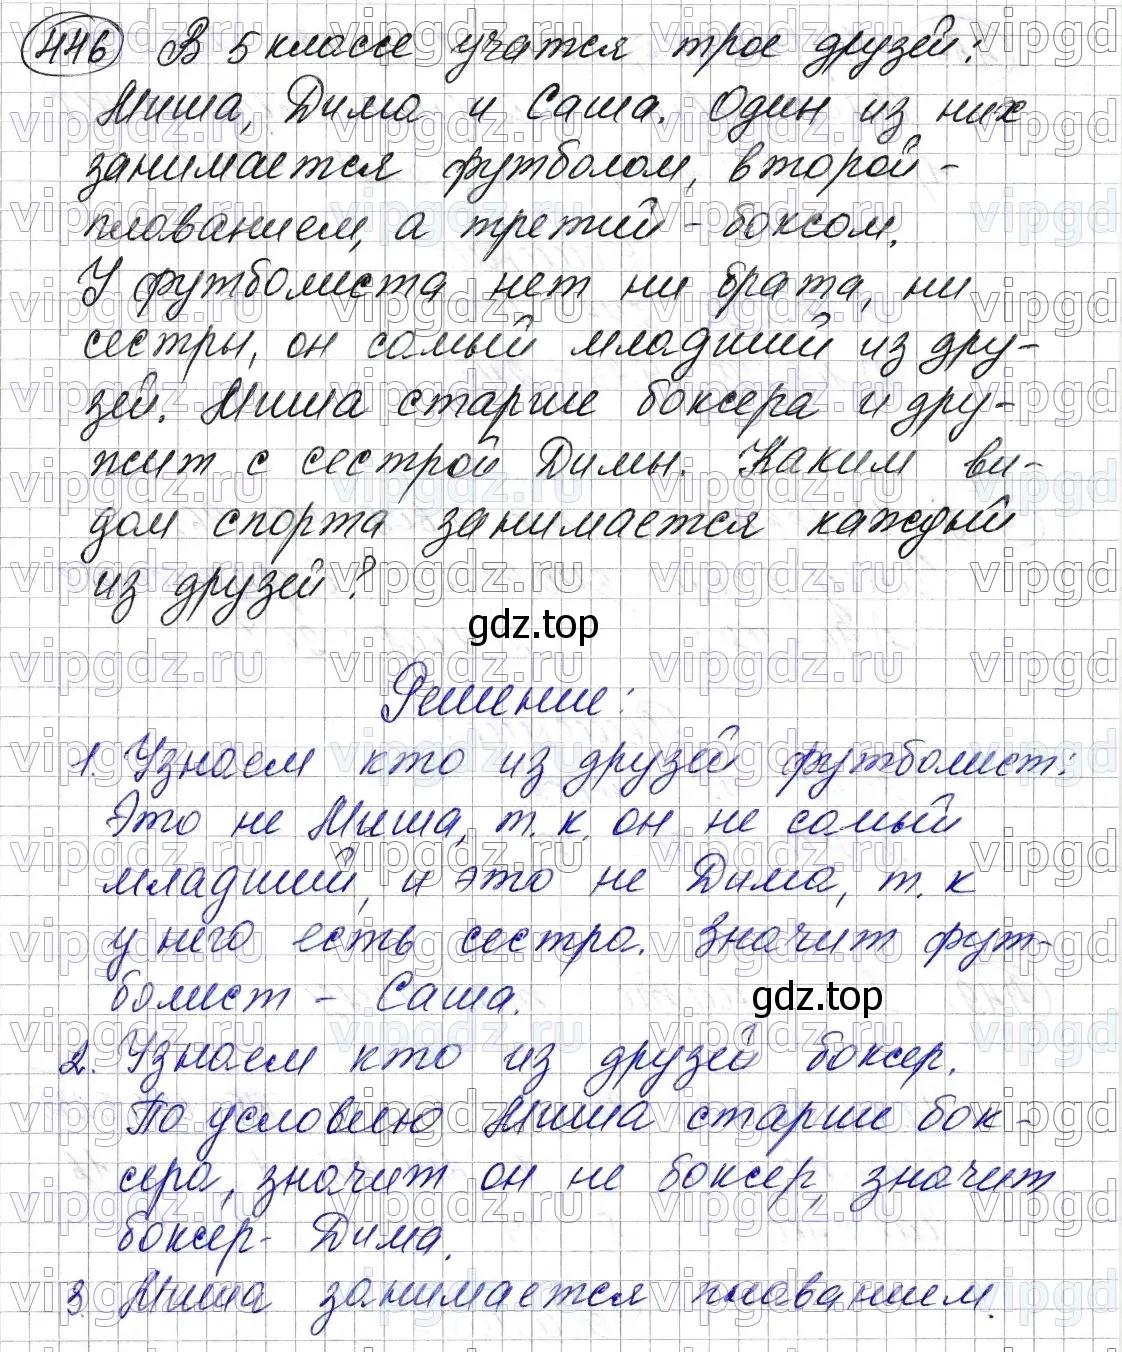 446 В 5 классе учатся трое друзей:
Миша, Дима и Саша. Один из них
занимается футболом, второй -
плованием, а третий - боксом.
У футболиста нет ни брата, ни
сестры, он самый младший из дру-
зей. Миша старше боксера и дру-
жит с сестрой Димы. Каким ви-
дом спорта занимается каждый
из друзей?
gdz.top
Решение:
1. Узнаем кто из друзей футболист:
Это не Миша, т. к. он не самый
младший, и это не Дима, т. к
у него есть сестра. Значит фут-
болист - Саша.
gdz.top
2. Узнаем кто из друзей боксер.
По условию Миша старше бок-
сера, значит он не боксер, значит
боксер - Дима.
3. Миша занимается плаванием.
vipgdz.ru